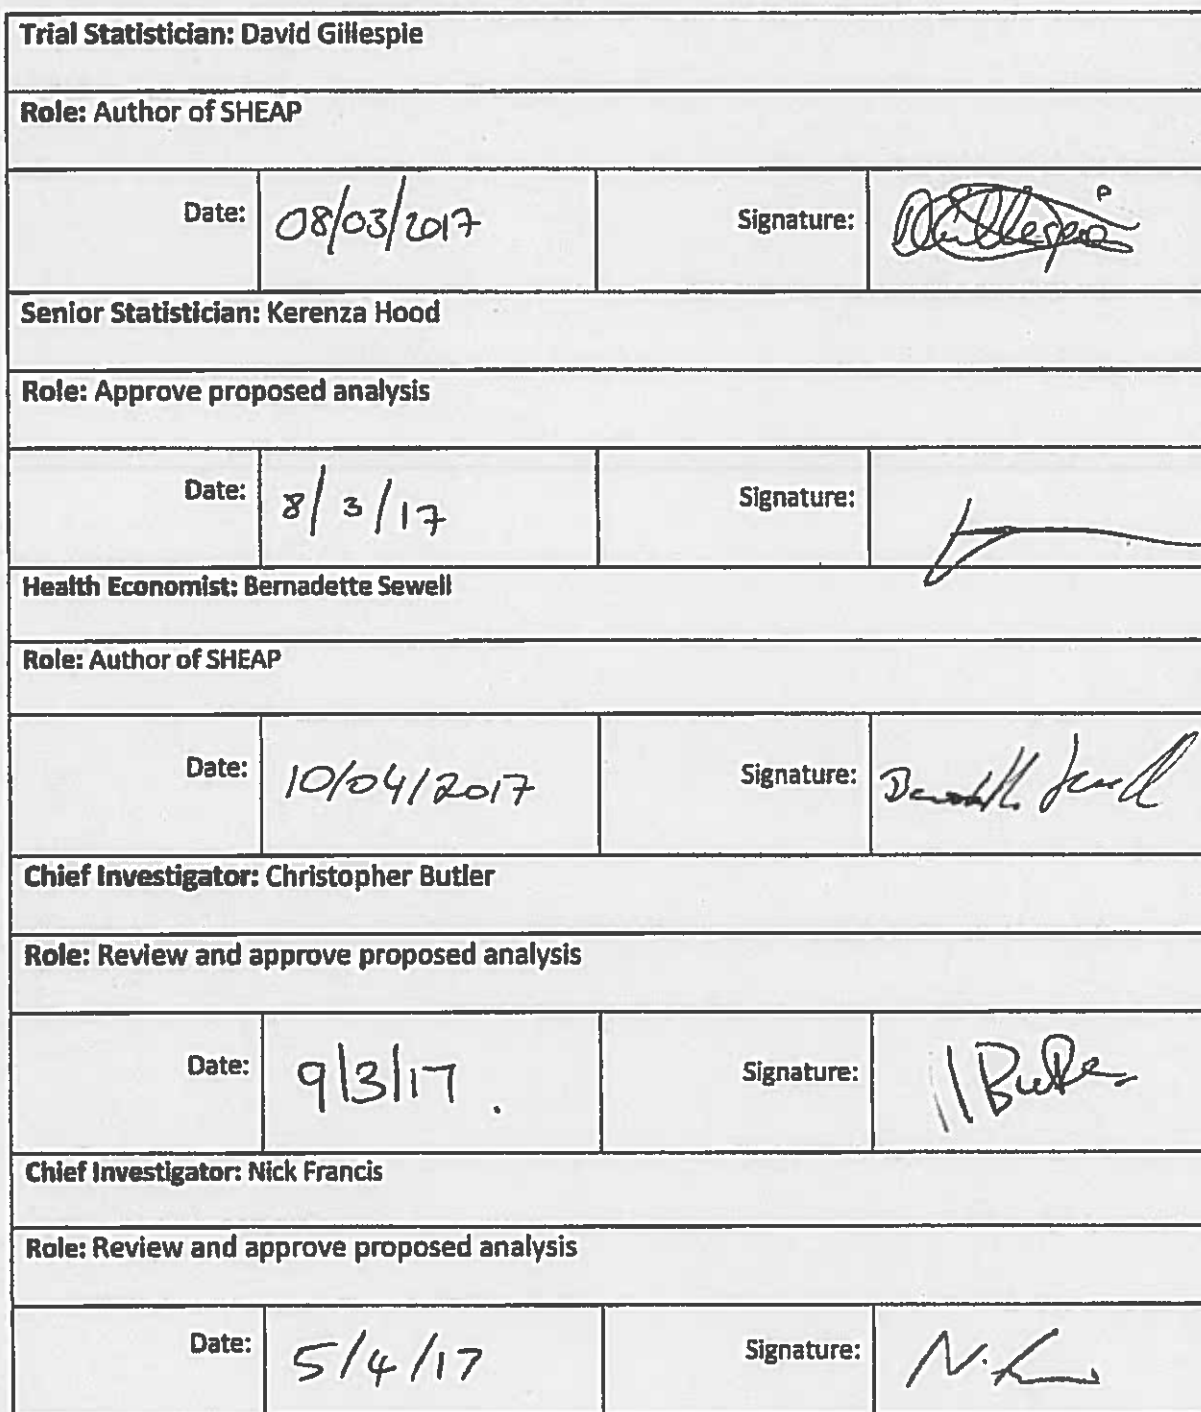 Trial Statistician: David Gillespie
Role: Author of SHEAP
Date: 08/03/2017 Signature:
Senior Statistician: Kerenza Hood
Role: Approve proposed analysis
Date: 8/3/17 Signature:
Health Economist: Bernadette Sewell
Role: Author of SHEAP
Date: 10/04/2017 Signature:
Chief Investigator: Christopher Butler
Role: Review and approve proposed analysis
Date: 9/3/17. Signature: Butler
Chief Investigator: Nick Francis
Role: Review and approve proposed analysis
Date: 5/4/17 Signature: